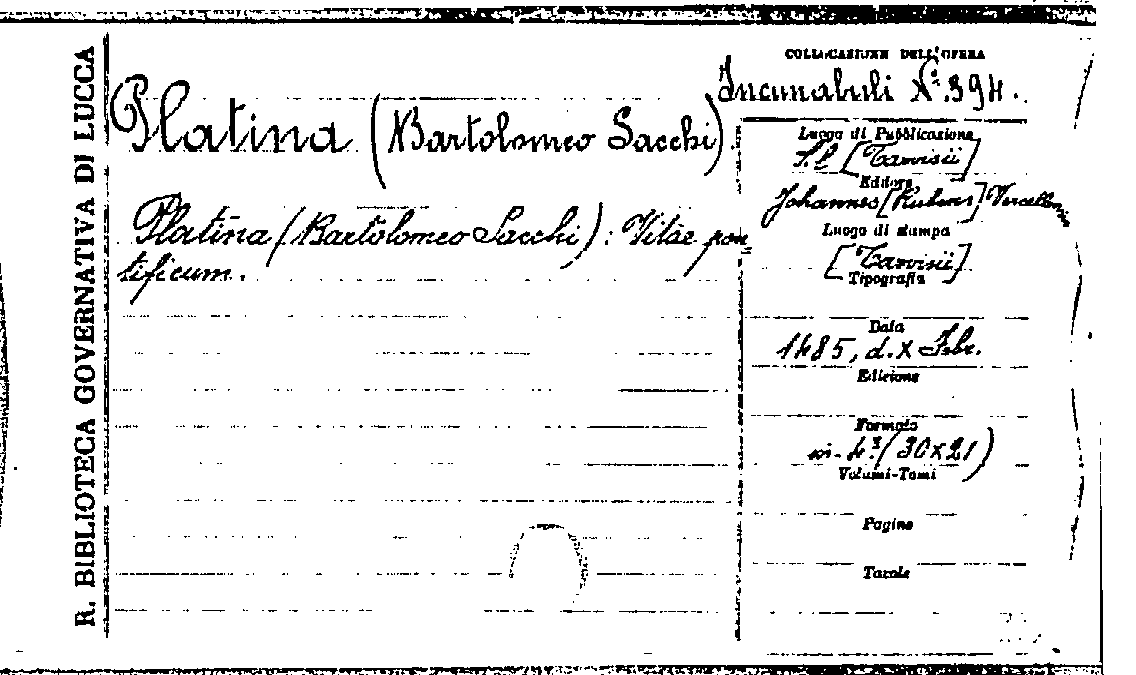 R. BIBLIOTECA GOVERNATIVA DI LUCCA
COLLOCAZIONE DELL'OPERA
Incunabuli N.º 394.
Platina (Bartolomeo Sacchi).
Platina (Bartolomeo Sacchi): Vitae pon-
tificum.
Luogo di Pubblicazione
S.l [Tarvisii]
Editore
Johannes [Rubeus] Vercellensis
Luogo di stampa
[Tarvisii]
Tipografia
Data
1485, d. X Febr.
Edizione
Formato
in-4.º (30x21)
Volumi-Tomi
Pagine
Tavole